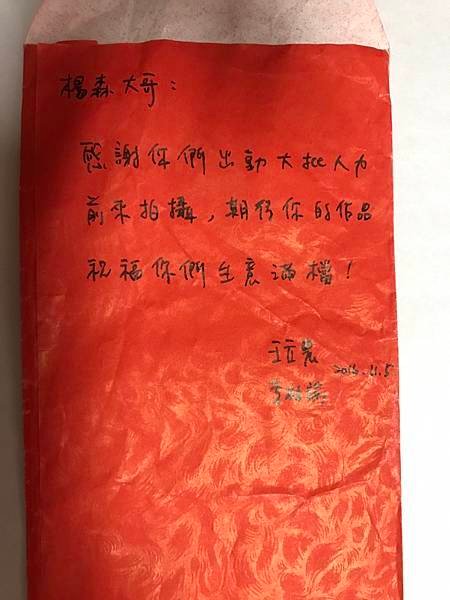 楊森大哥：
感謝你們出動大批人力
前來拍攝，期待你的作品
祝福你們生意滿檔！
2016.11.5